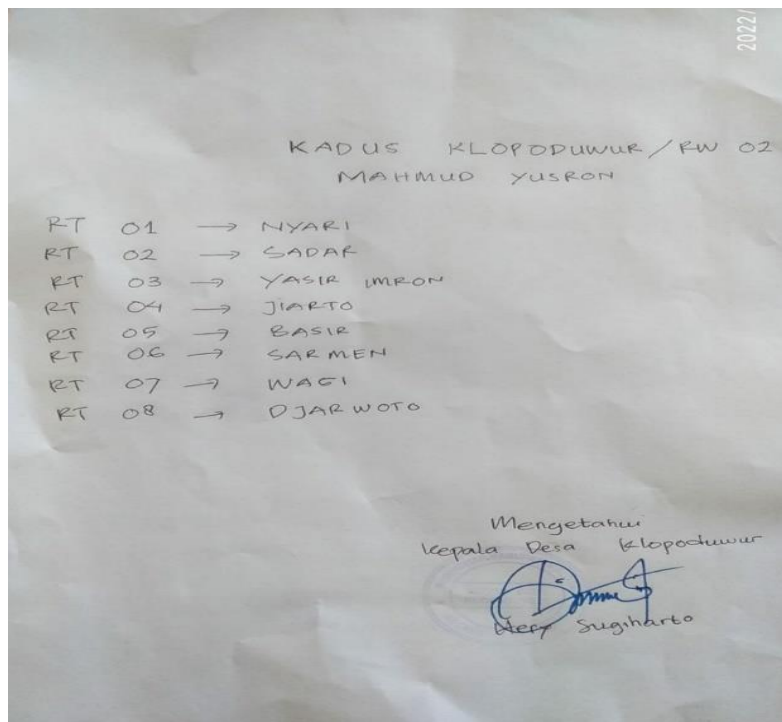 2022/
KADUS KLOPODUWUR / RW 02
MAHMUD YUSRON
RT 01 → NYARI
RT 02 → SADAR
RT 03 → YASIR IMRON
RT 04 → JIARTO
RT 05 → BASIR
RT 06 → SARMEN
RT 07 → WAGI
RT 08 → DJARWOTO
Mengetahui
Kepala Desa Klopoduwur
Hery Sugiharto